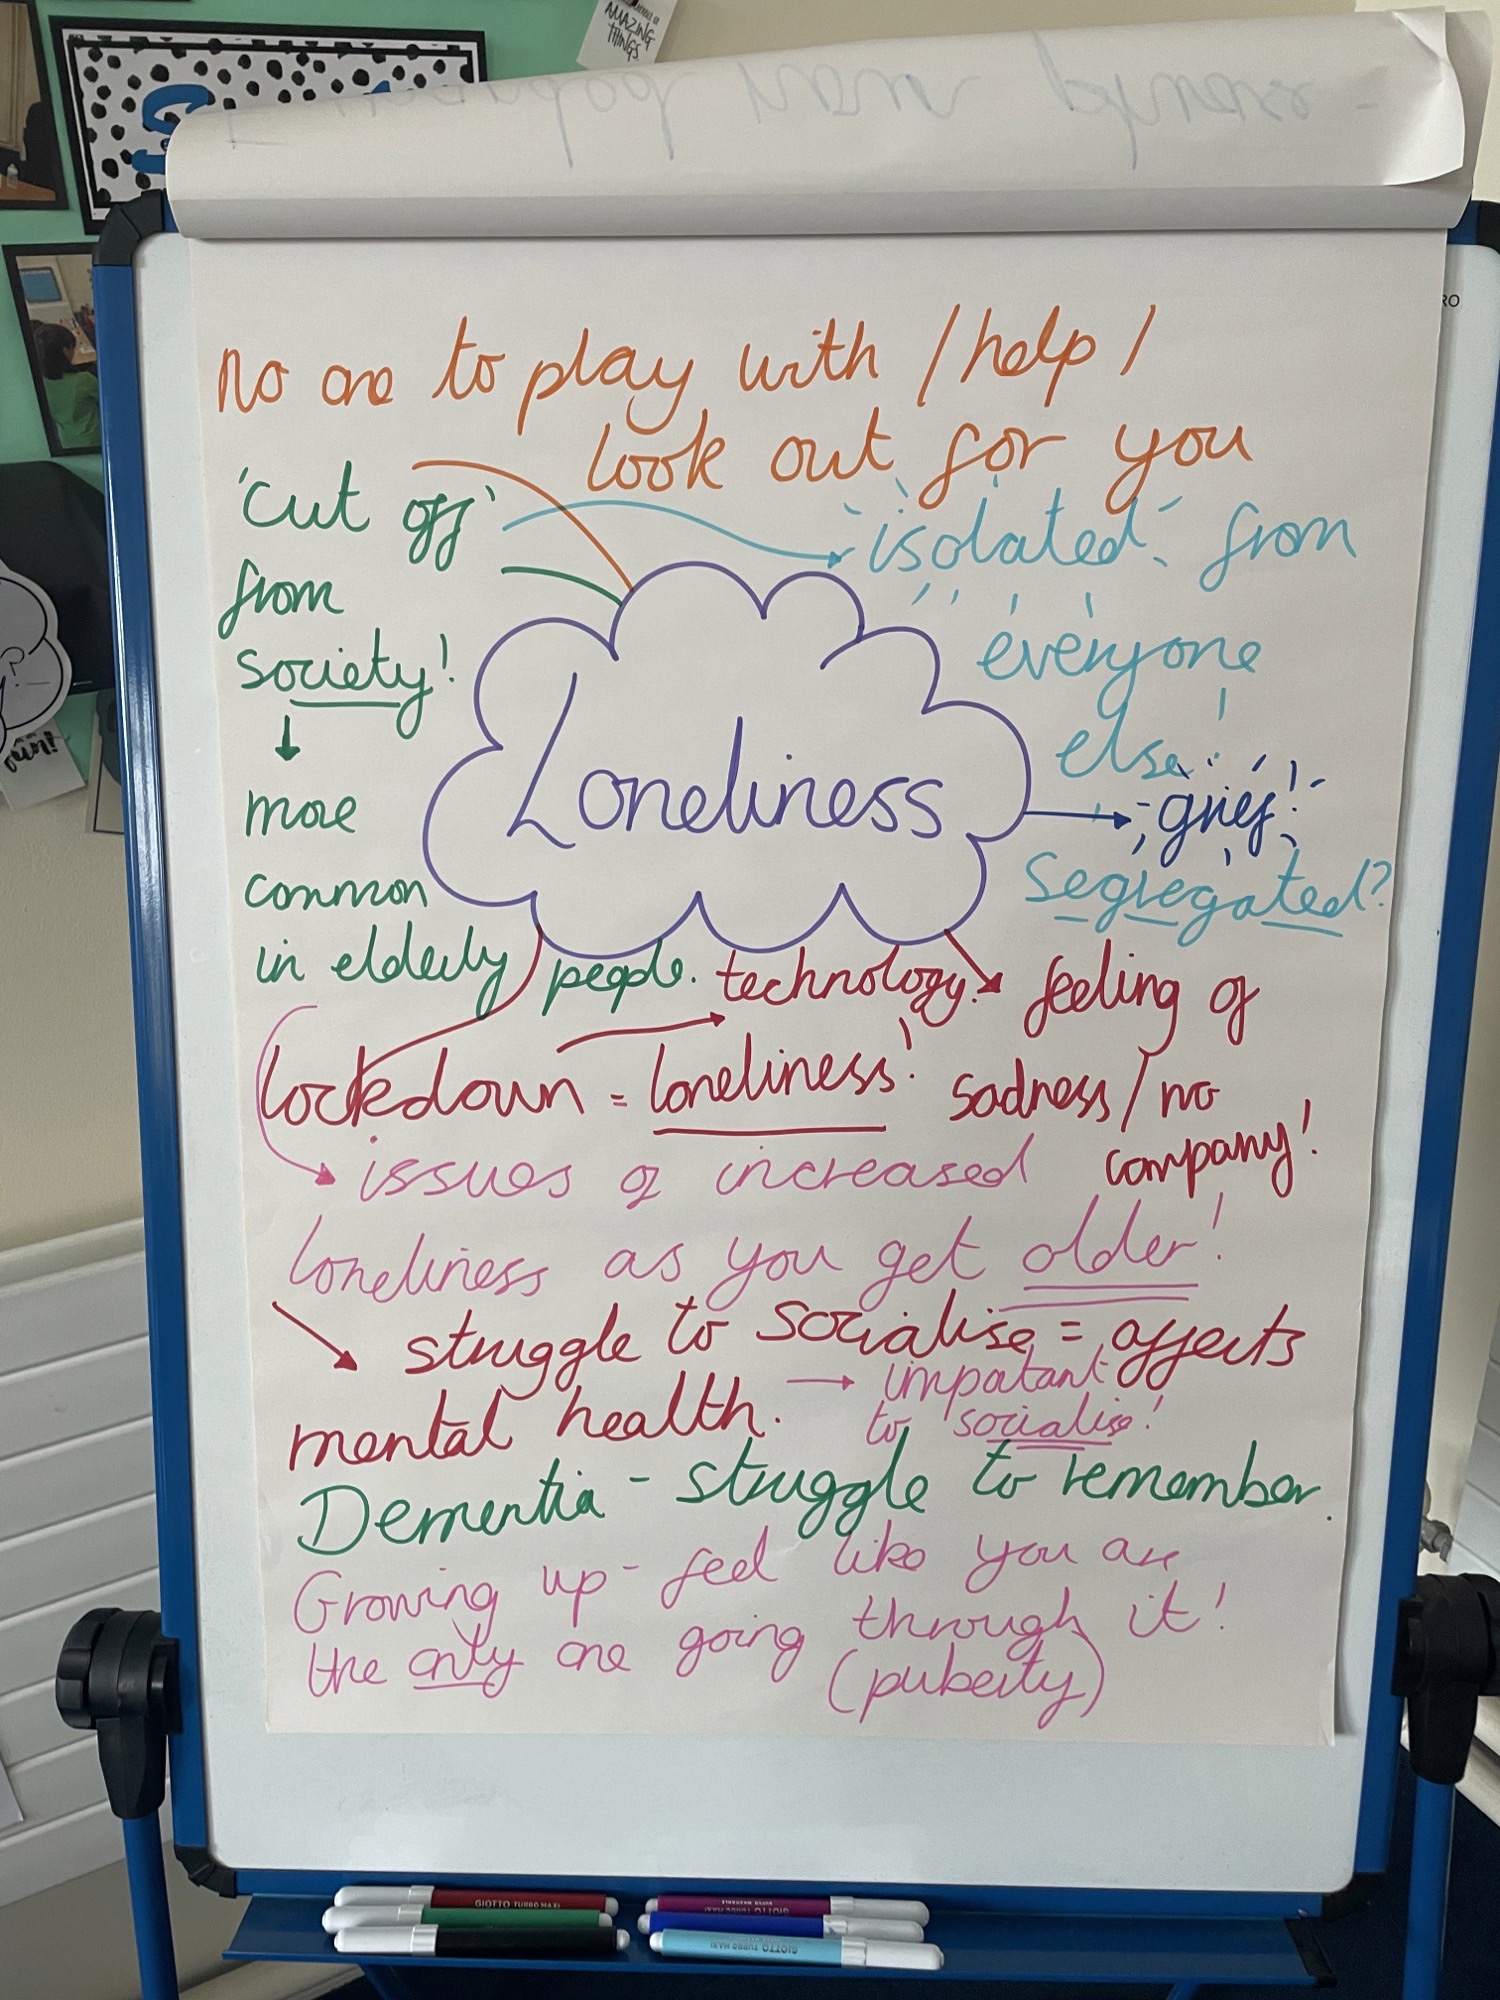 AMAZING
THINGS
No one to play with / help /
look out for you
'cut off'
from
society!
more
common
in elderly people.
'isolated' from
everyone
else!
Loneliness
grief!
segregated?
technology.
feeling of
sadness / no
company!
lockdown = loneliness!
issues of increased
loneliness as you get older!
struggle to socialise = affects
mental health.
important
to socialise!
Dementia - struggle to remember.
Growing up - feel like you are
the only one going through it!
(puberty)
GIOTTO TURBO MAXI
GIOTTO TURBO MAXI
GIOTTO TURBO MAXI